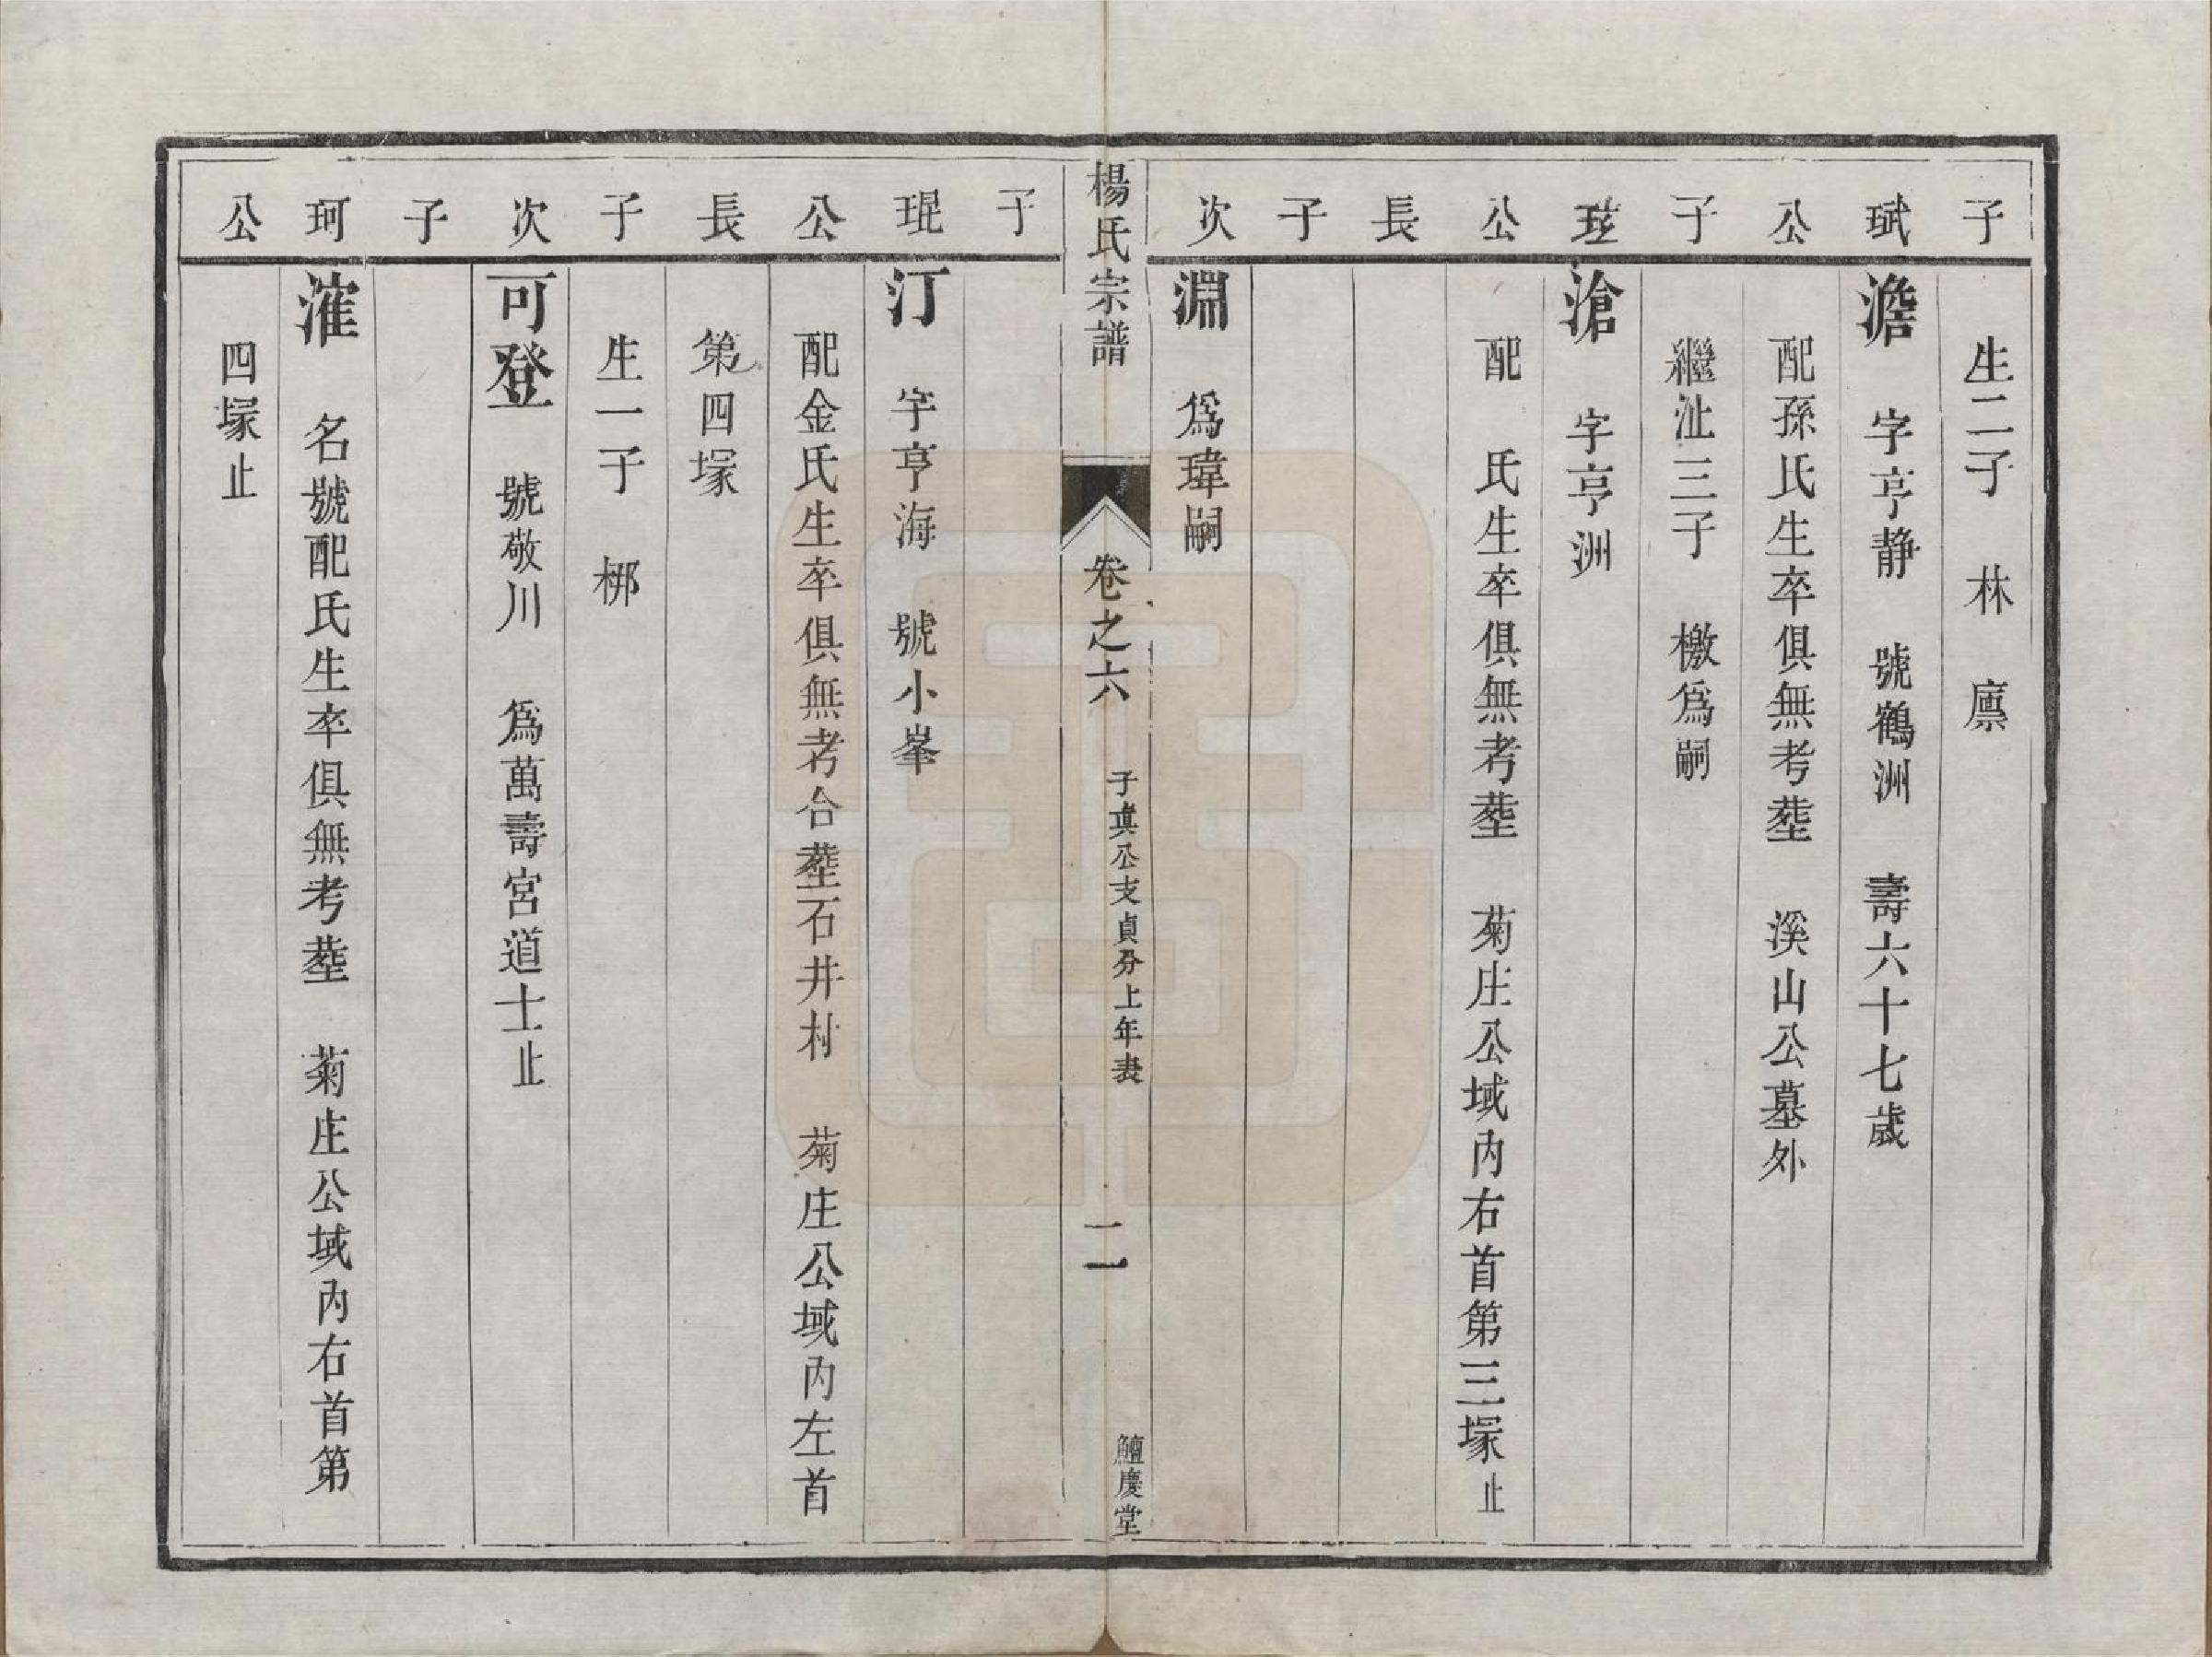 子　生二子　林　廪
珷　澹　字亨静　號鶴洲　壽六十七歲
公　配孫氏生卒俱無考塟　溪山公墓外
子　繼沚三子　檄爲嗣
滄　字亨洲
公　配　氏生卒俱無考塟　菊庄公域內右首第三塚止
長
子
次　淵　爲瑋嗣
楊氏宗譜　卷之六　子真公支貞分上年表　二　鱣慶堂
子
琨　汀　字亨海　號小峯
公　配金氏生卒俱無考合塟石井村　菊庄公域內左首
長　第四塚
子　生一子　梛
次　可登　號敬川　爲萬壽宮道士止
子
珂　漼　名號配氏生卒俱無考塟　菊庄公域內右首第
公　四塚止